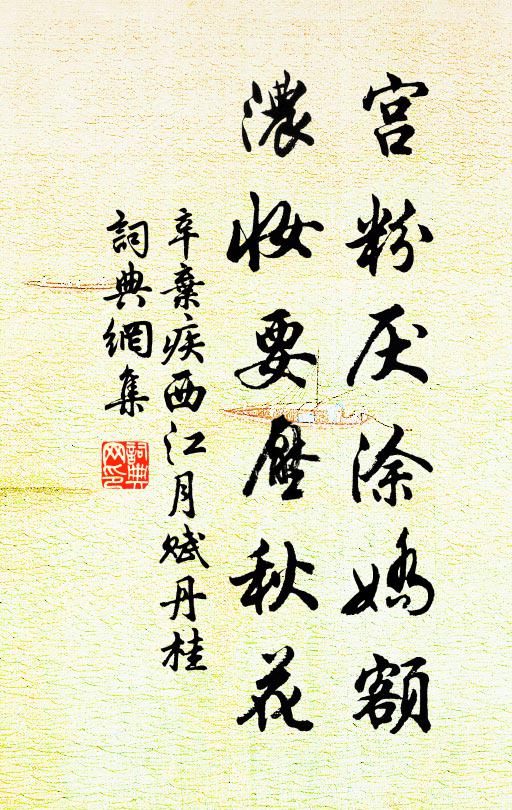 宫粉厌涂嬌額
濃妝要壓秋花
辛棄疾西江月赋丹桂
詞典網集
詞典網印